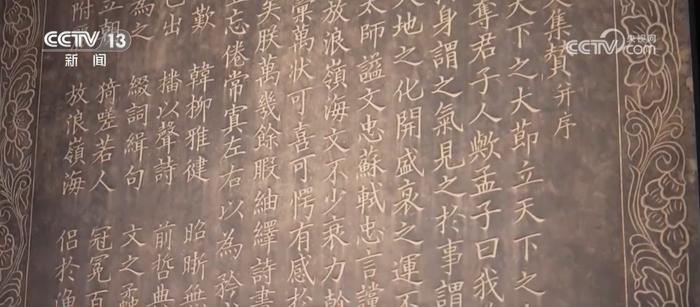 CCTV 13
新闻
CCTV.com 央视网
集贊并序
天下之大節立天下之
奪君子人歟孟子曰我
身謂之氣見之於事謂
天地之化開盛衰之運不
太師謚文忠蘇軾忠言讜
放浪嶺海文不少衰力斡
彙萬狀可喜可愕有感於
矣朕萬幾餘暇紬繹詩書
忘倦常寘左右以為矜
歎 韓柳雅健 昭晰無
已出 播以聲詩 前哲典
為之 綴詞緝句 文之蠹
立朝 猗嗟若人 冠冕百
附 放浪嶺海 侶於漁